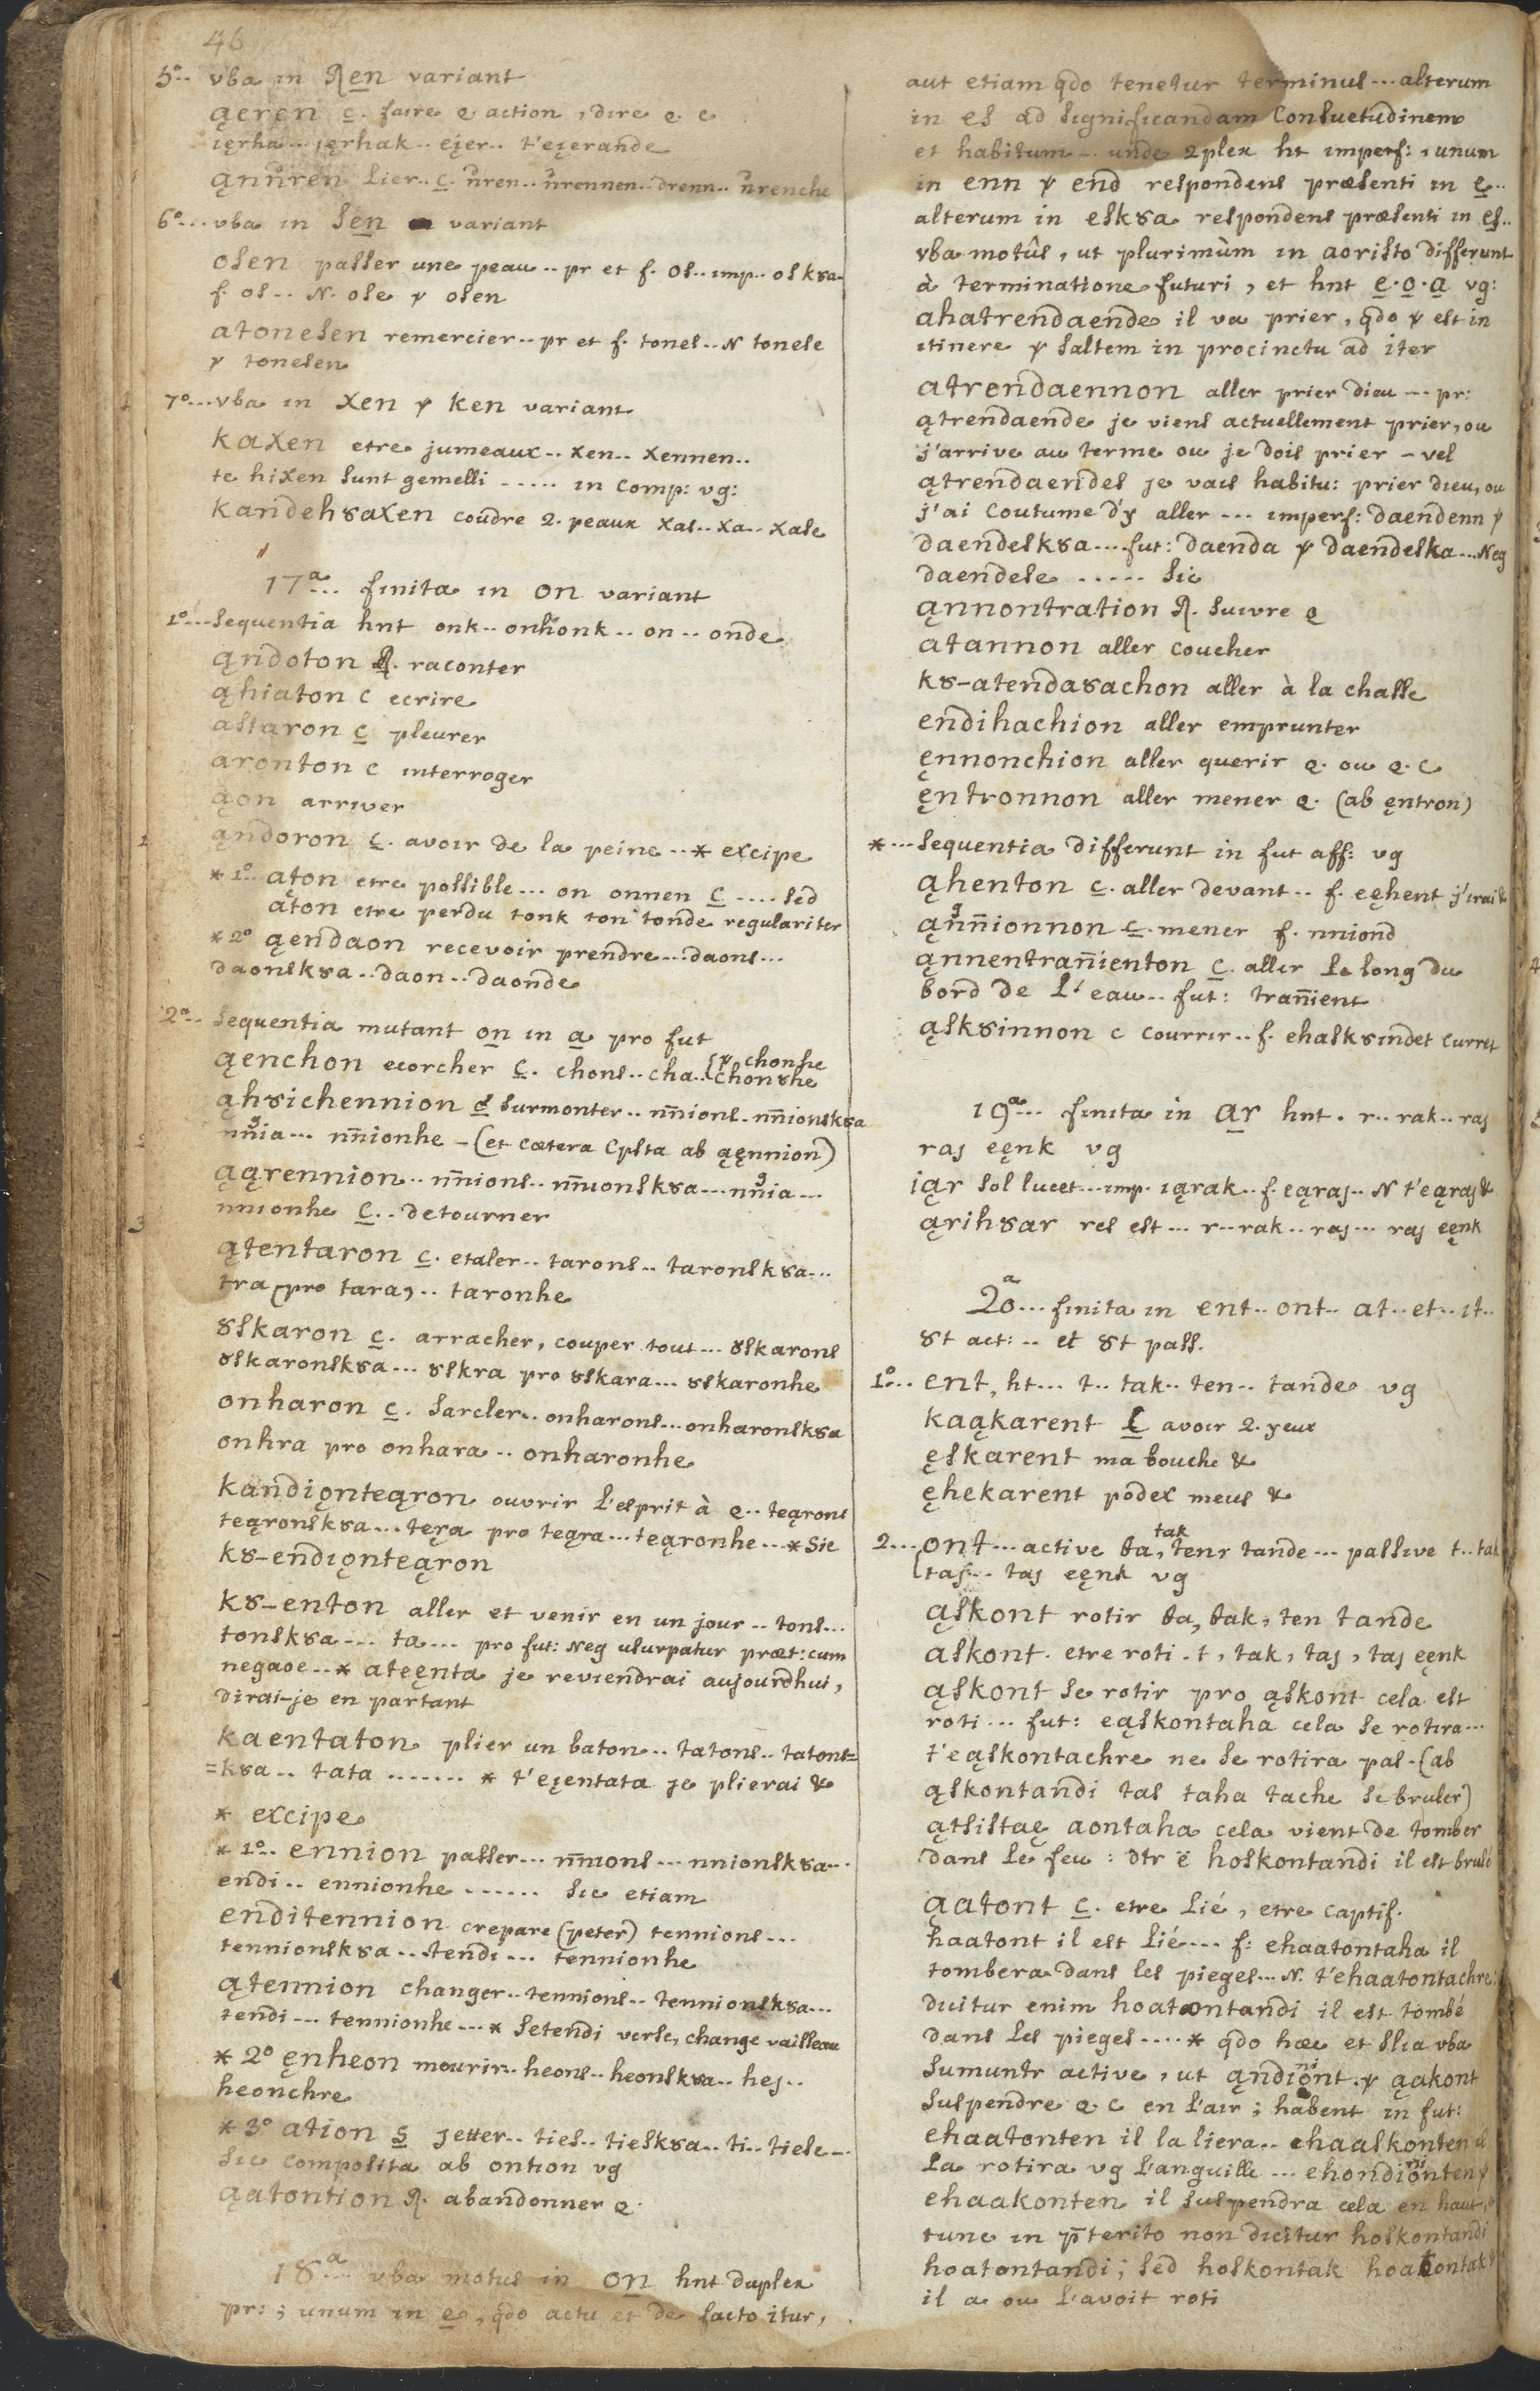 46
5º.. vba in Ren variant
ąeren c. faire q action, dire q. c
ięrha... ięrhak.. eįer.. t'eįerande
ąnn̄ren lier.. c. n̄ren.. n̄rennen.. drenn.. n̄renche
6º... vba in sen variant
osen passer une peau.. pr et f. os.. imp.. osk8a
f. os.. N. ose & osen
atonesen remercier.. pr et f. tones.. N tonese
& tonesen
7º... vba in xen & ken variant
kaxen etre jumeaux.. xen.. xennen..
te hixen sunt gemelli ..... in comp: vg:
kandeh8axen coudre 2. peaux xas.. xa.. xase
17a... finita in on variant
1º... sequentia hnt onk.. onhonk.. on.. onde
ąndoton R. raconter
ąhiaton c ecrire
astaron c pleurer
aronton c interroger
ąon arriver
ąndoron c. avoir de la peine.. * excipe
* 1º aton etre possible... on onnen c.... sed
aton etre perdu tonk ton tonde regulariter
* 2º ąendaon recevoir prendre... daons...
daonsk8a.. daon.. daonde
2º.. sequentia mutant on in a pro fut
ąenchon ecorcher c. chons.. cha.. (& chonhe
chon8he
ąh8ichennion c surmonter.. nn̄ions. nn̄ionsk8a
nn̄ia... nn̄ionhe - (et cætera cpsta ab ąęnnion)
ąąrennion.. nn̄ions.. nn̄ionsk8a... nn̄ia...
nnionhe c.. detourner
ątentaron c. etaler.. tarons.. taronsk8a...
tra (pro tara).. taronhe
8skaron c. arracher, couper tout... 8skarons
8skaronsk8a... 8skra pro 8skara... 8skaronhe
onharon c. sarcler.. onharons... onharonsk8a
onhra pro onhara.. onharonhe
kandįonteąron ouvrir l'esprit à q.. teąrons
teąronsk8a... tera pro teąra... teąronhe... * Sic
k8-endįonteąron
k8-enton aller et venir en un jour.. tons...
tonsk8a... ta... pro fut: Neg usurpatur præt: cum
negaoe.. * ateęnta je reviendrai aujourdhui,
dirai-je en partant
kaentaton plier un baton.. tatons.. tatons=
=k8a.. tata ....... * t'eįentata je plierai &
* excipe
* 1º.. ennion passer... nn̄ions... nnionsk8a...
endi.. ennionhe ...... sic etiam
enditennion crepare (peter) tennions...
tennionsk8a.. tendi... tennionhe
ątennion changer.. tennions.. tennionsk8a...
tendi... tennionhe... * setendi verse, change vaisseau
* 2º ęnheon mourir.. heons.. heonsk8a.. hej..
heonchre
* 3º ation s jetter.. ties.. tiesk8a.. ti.. tiese...
sic composita ab ontion vg
ąatontion R. abandonner q.
18a... vba motus in on hnt duplex
pr: ; unum in e, qdo actu et de facto itur,
aut etiam qdo tenetur terminus... alterum
in es ad significandam consuetudinem
et habitum.. unde 2plex ht imperf: , unum
in enn & end respondens præsenti in e..
alterum in esk8a respondens præsenti in es..
vba motûs, ut plurimùm in aoristo differunt
à terminatione futuri, et hnt e.o.a vg:
ahatrendaende il va prier, qdo & est in
itinere & saltem in procinctu ad iter
atrendaennon aller prier dieu... pr:
ątrendaende je viens actuellement prier, ou
j'arrive au terme ou je dois prier - vel
ątrendaendes je vais habitu: prier dieu, ou
j'ai coutume d'y aller... imperf: daendenn &
daendesk8a.... fut: daenda & daendeska... Neg
daendese ..... sic
ąnnontration R. suivre q
atannon aller coucher
k8-atenda8achon aller à la chasse
endihachion aller emprunter
ęnnonchion aller querir q. ou q. c
ęntronnon aller mener q. (ab ęntron)
*... sequentia differunt in fut aff: vg
ąhenton c. aller devant.. f. eęhent j'irai &
ąnn̄ionnon c. mener f. nniond
ąnnentran̄ienton c. aller le long du
bord de l'eau.. fut: tran̄ient
ąsk8innon c courrir.. f. ehask8indet curret
19a... finita in ar hnt. r.. rak.. raj
raj eęnk vg
iąr sol lucet... imp. iąrak.. f. eąraj.. N t'eąraj &
ąrih8ar res est... r.. rak.. raj... raj eęnk
20a... finita in ent.. ont.. at.. et.. it..
8t act: .. et 8t pass.
1º.. ent, ht... t.. tak.. ten.. tande vg
kaąkarent c avoir 2. yeux
ęskarent ma bouche &
ęhekarent podex meus &
2... ont... active ta, tak ten, tande... passive t.. tak
taj.. taj eęnk vg
ąskont rotir ta, tak, ten tande
askont. etre roti. t, tak, taj, taj eęnk
ąskont se rotir pro ąskont cela est
roti... fut: eąskontaha cela se rotira...
t'eąskontachre ne se rotira pas. (ab
ąskontandi tas taha tache se bruler)
ątsistaę aontaha cela vient de tomber
dans le feu : dtr ë hoskontandi il est brulé
ąatont c. etre lié, etre captif.
haatont il est lié.... f: ehaatontaha il
tombera dans les pieges... N. t'ehaatontachre:
dicitur enim hoatontandi il est tombé
dans les pieges.... * qdo hæc et slia vba
sumuntr active, ut ąndiont & ąakont
suspendre q. c en l'air ; habent in fut:
ehaatonten il la liera.. ehaaskonten il
la rotira vg l'anguille... ehondionten &
ehaakonten il suspendra cela en haut,
tunc in p̄terito non dicitur hoskontandi
hoatontandi ; sed hoskontak hoatontak
il a ou l'avoit roti